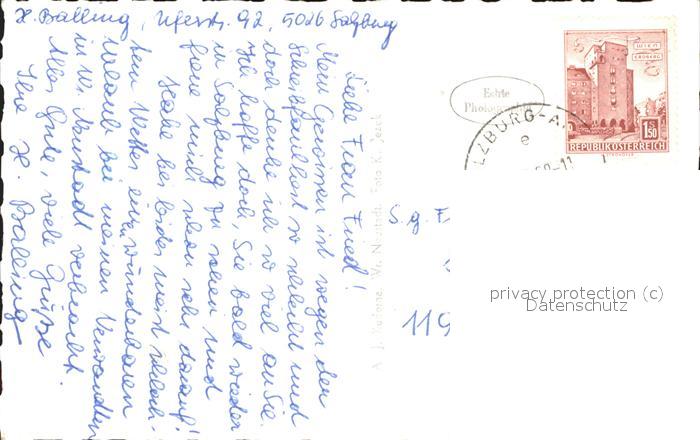 X. Balling, Uferstr. 92, 5026 Salzburg
Liebe Frau Fried!
Mein Gewissen ist wegen der
Schreibfaulheit so schlecht und
doch denke ich so viel an Sie.
Ich hoffe doch, Sie bald wieder
in Salzburg zu sehen und
freue mich schon sehr darauf!
Habe hier leider meist schlech-
tem Wetter einen wunderbaren
Urlaub bei meinen Verwandten
in Wr. Neustadt verbracht.
Alles Gute, viele Grüße
Ihre X. Balling
Wr. Neustadt. Foto K.
S. g. F
119
Echte
WIEN
ERDBERG
1.50
REPUBLIK ÖSTERREICH
LZBURG-A
e
privacy protection (c)
Datenschutz